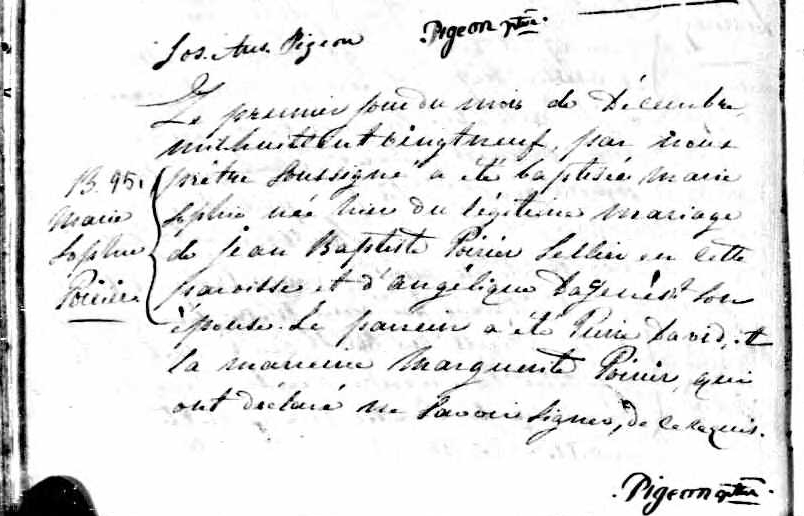 Jos. Aus. Pigeon
Pigeon ptre.
Le premier jour du mois de Décembre
mil huit cent vingt neuf, par nous
prêtre soussigné a été baptisée Marie
Sophie née hier du légitime mariage
de Jean Baptiste Poirier Sellier en cette
paroisse et d'Angélique Dagenés son
épouse. Le parrein a été Pierre David, et
la marreine Marguerite Poirier, qui
ont déclaré ne savoir signer, de ce requis.
B. 95.
Marie
Sophie
Poirier.
Pigeon ptre.